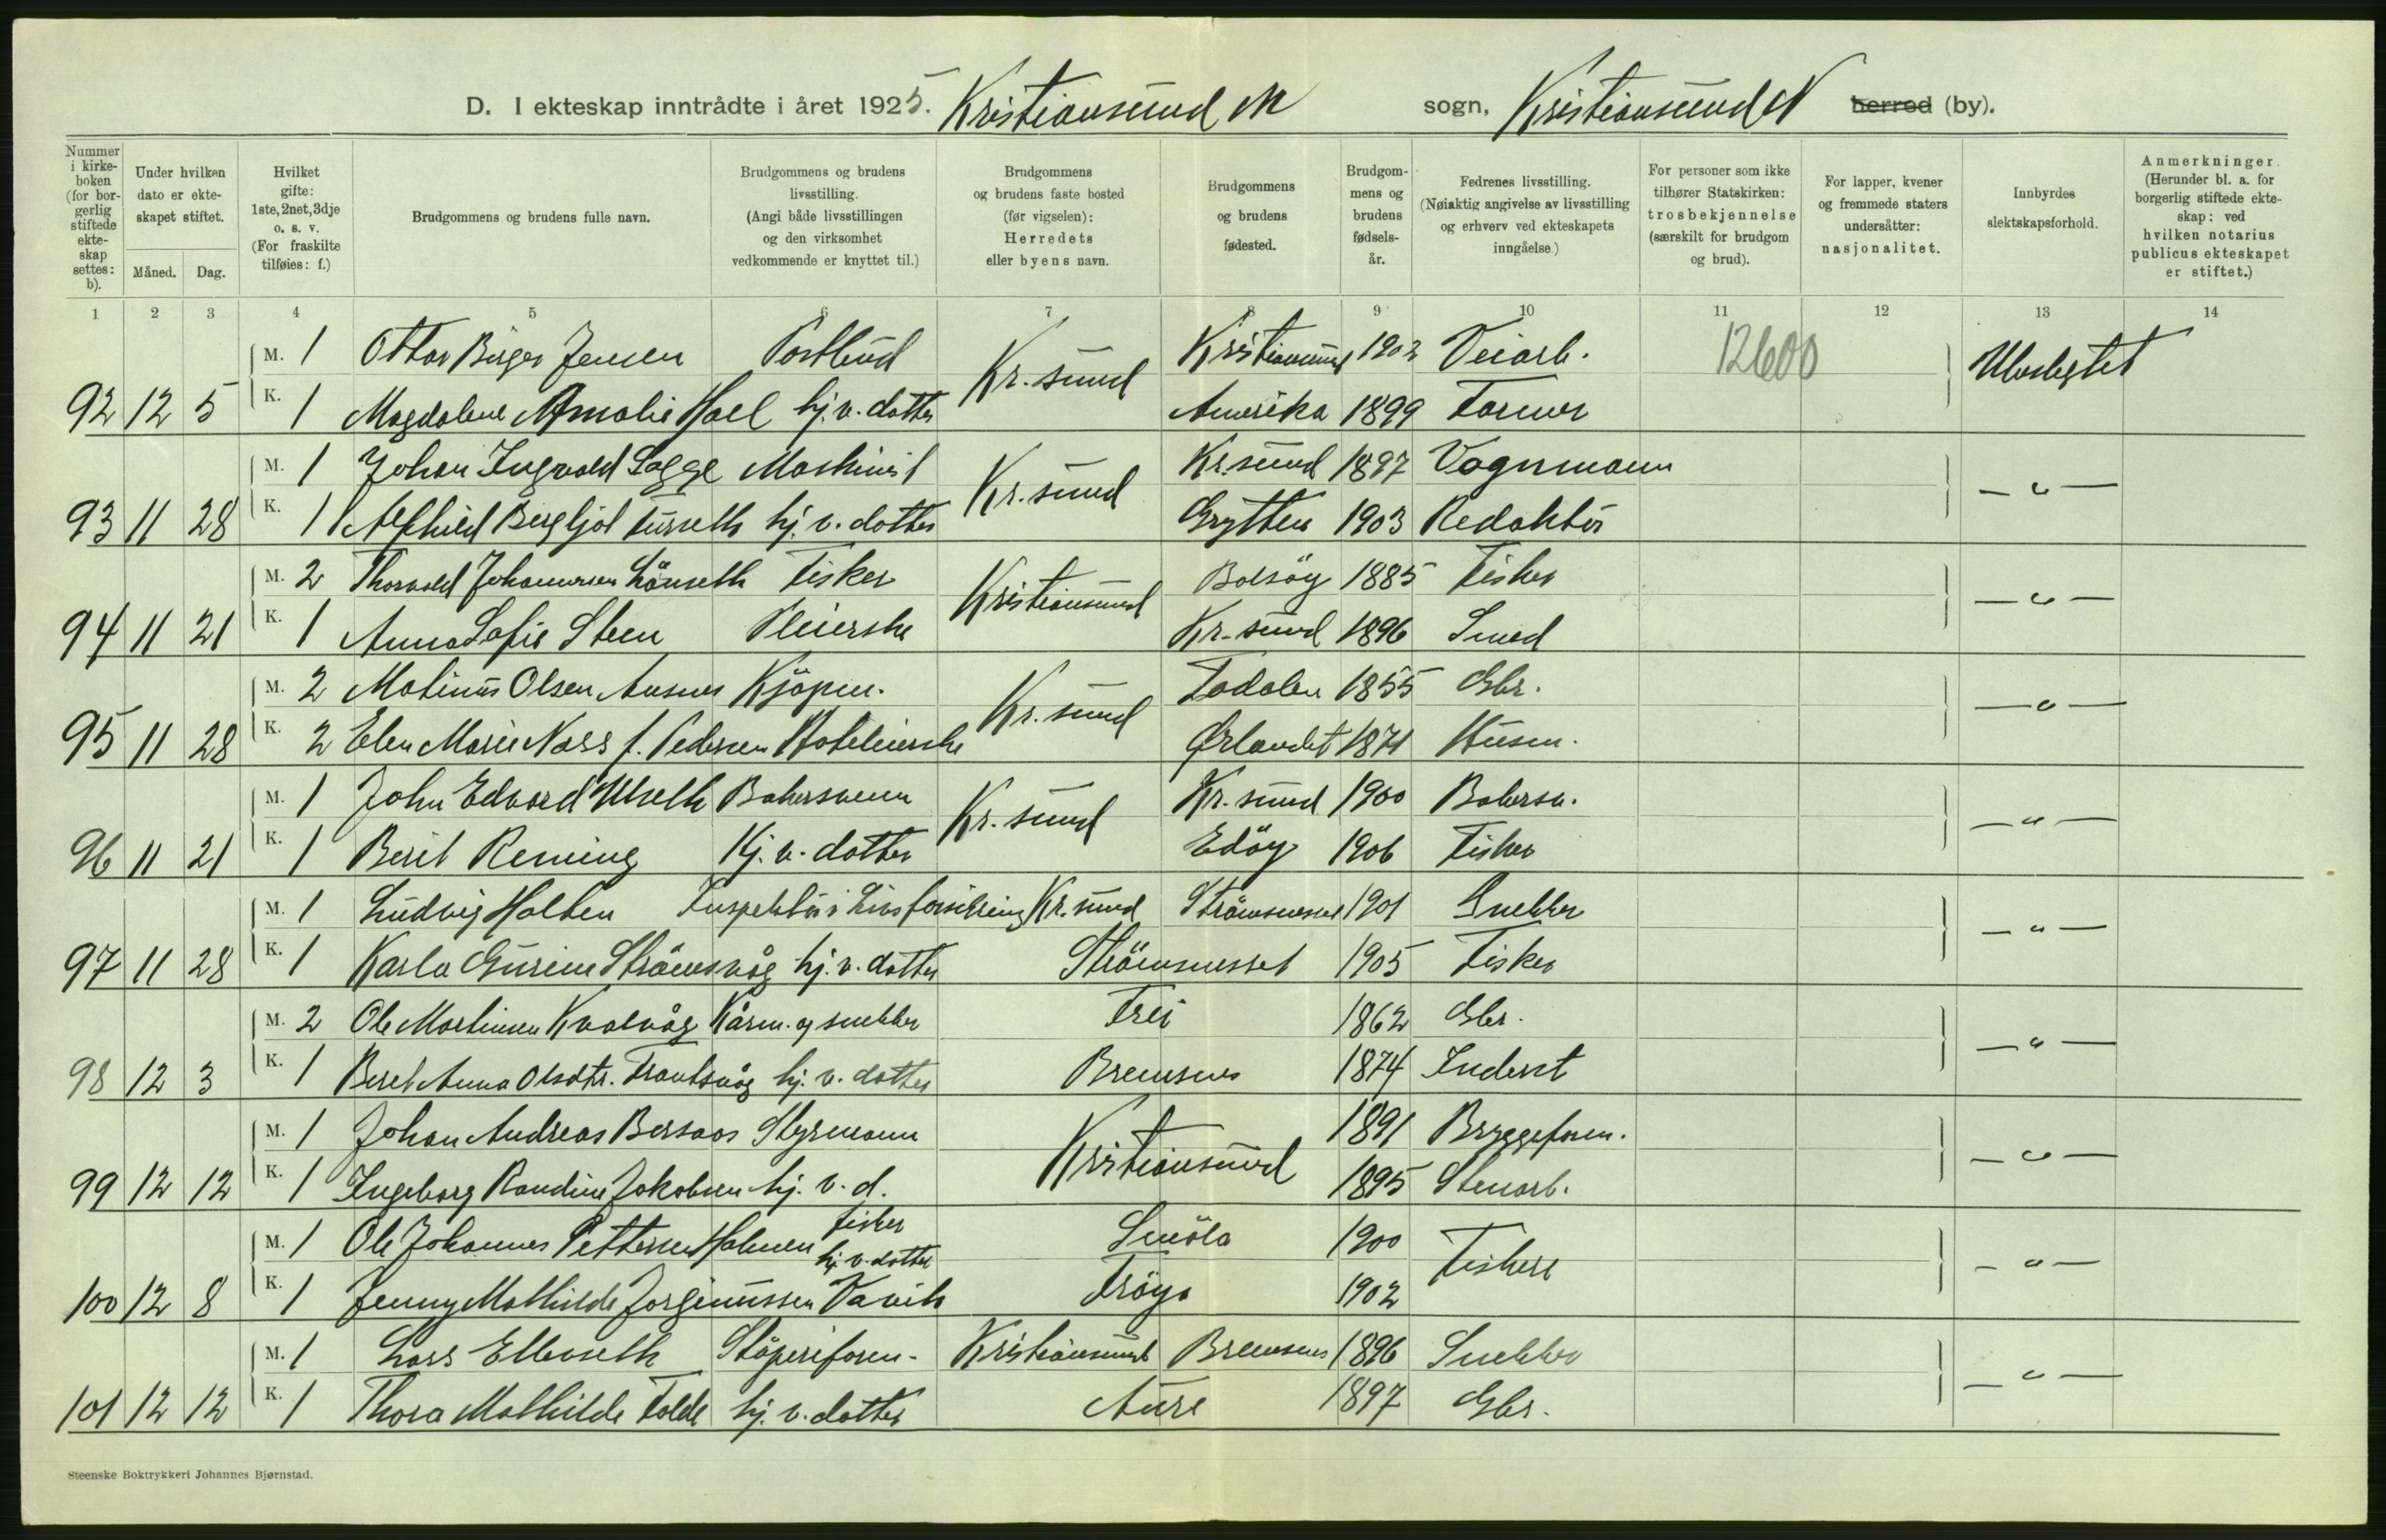 D. I ekteskap inntrådte i året 1925. Kristiansund N sogn, Kristiansund N herred (by).
Nummer i kirkeboken (for borgerlig stiftede ekteskap settes: b).
Under hvilken dato er ekteskapet stiftet.
Måned. Dag.
Hvilket gifte: 1ste, 2net, 3dje o. s. v. (For fraskilte tilføies: f.)
Brudgommens og brudens fulle navn.
Brudgommens og brudens livsstilling. (Angi både livsstillingen og den virksomhet vedkommende er knyttet til.)
Brudgommens og brudens faste bosted (før vigselen): Herredets eller byens navn.
Brudgommens og brudens fødested.
Brudgommens og brudens fødselsår.
Fedrenes livsstilling. (Nøiaktig angivelse av livsstilling og erhverv ved ekteskapets inngåelse.)
For personer som ikke tilhører Statskirken: trosbekjennelse (særskilt for brudgom og brud).
For lapper, kvener og fremmede staters undersåtter: nasjonalitet.
Innbyrdes slektskapsforhold.
Anmerkninger. (Herunder bl. a. for borgerlig stiftede ekteskap: ved hvilken notarius publicus ekteskapet er stiftet.)
1 2 3 4 5 6 7 8 9 10 11 12 13 14
M. 1 Ottar Birger Jensen Postbud Kr.sund Kristiansund 1902 Veiarb. 12600 Ubeslegtet
92 12 5 K. 1 Magdalene Amalie Hoel hj. v. datter Amerika 1899 Farmer
M. 1 Johan Ingvald Sagge Maskinist Kr.sund Kr.sund 1897 Vognmann — " —
93 11 28 K. 1 Alfhild Bergljot Furseth hj. v. datter Grytten 1903 Redaktör
M. 2 Thorvald Johannesen Lönseth Fisker Kristiansund Bolsöy 1885 Fisker — " —
94 11 21 K. 1 Anna Sofie Steen Pleierske Kr.sund 1896 Smed
M. 2 Matinus Olsen Aasnes Kjöpm. Kr.sund Todalen 1855 Gbr. — " —
95 11 28 K. 2 Elen Marie Nass f. Pedersen Hoteleierske Ørlandet 1871 Husm.
M. 1 John Edvard Ulseth Bakersvenn Kr.sund Kr.sund 1900 Bakersv. — " —
96 11 21 K. 1 Berit Reming Hj. v. datter Edöy 1906 Fisker
M. 1 Ludvig Holten Inspektör i Livsforsikring Kr.sund Strömsnesset 1901 Snekker — " —
97 11 28 K. 1 Karla Gurine Strömsvåg hj. v. datter Strömsnesset 1905 Fisker
M. 2 Ole Martinsen Kvalvåg Kårm. og snekker Frei 1862 Gbr. — " —
98 12 3 K. 1 Beret Anna Olsdtr. Frantsvåg hj. v. datter Bremsnes 1874 Inderst
M. 1 Johan Andreas Bersaas Styrmann Kristiansund 1891 Bryggeform. — " —
99 12 12 K. 1 Ingeborg Randine Jakobsen hj. v. d. 1895 Stenarb.
M. 1 Ole Johannes Pettersen Holmen fisker Smöla 1900 Fiskere — " —
100 12 8 K. 1 Jenny Mathilde Jørginussen Vavik hj. v. datter Fröya 1902
M. 1 Lars Ellevseth Stöperiform. Kristiansund Bremsnes 1896 Snekker — " —
101 12 12 K. 1 Thora Mathilde Folde hj. v. datter Aure 1897 Gbr.
Steenske Boktrykkeri Johannes Bjørnstad.